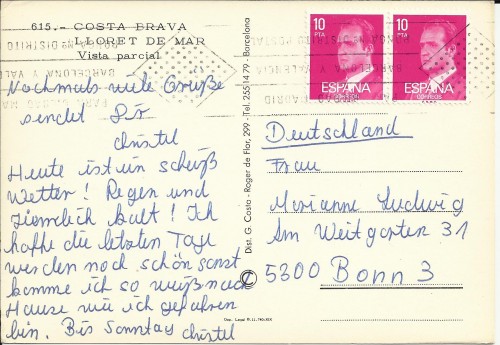 615.- COSTA BRAVA
LLORET DE MAR
Vista parcial
Nochmals viele Grüße
sendet Dir
Christel
Heute ist ein scheiß
Wetter! Regen und
ziemlich kalt! Ich
hoffe die letzten Tage
werden noch schön sonst
komme ich so weiß nach
Hause wie ich gefahren
bin. Bis Sonntag Christel
Dist. G. Costa - Roger de Flor, 299 - Tel. 255 14 79 - Barcelona
10
PTA
ESPAÑA
CORREOS
10
PTA
ESPAÑA
CORREOS
BARCELONA Y VALENCIA
Deutschland
Frau
Marianne Ludwig
Am Weitgarten 31
5300 Bonn 3